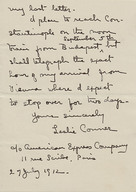 my last letter.
I plan to reach Con-
stantinople on the noon
September 5th
train from Budapest, but
shall telegraph the exact
hour of my arrival from
Vienna where I expect
to stop over for two days.
Yours sincerely
Leslie Conner
c/o American Express Company
11 rue Scribe, Paris
27 July 1912.